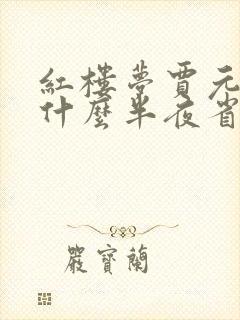 紅樓夢賈元
什麼半夜省
嚴寶蘭